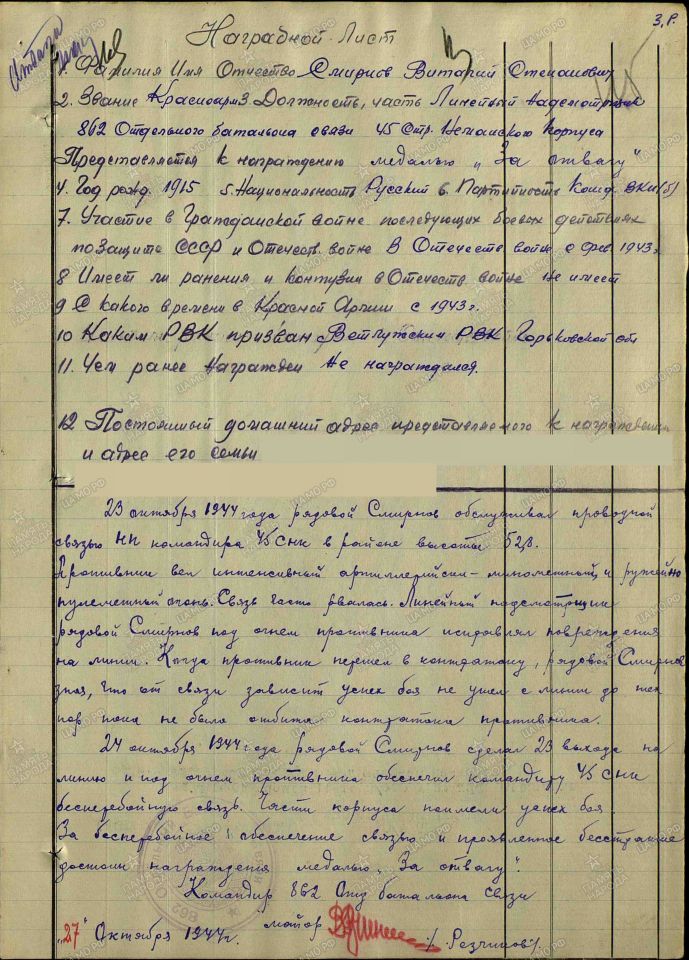 3, Р.
Наградной Лист
1. Фамилия Имя Отчество Смирнов Виталий Степанович
2. Звание Красноарм 3. Должность, часть Линейный Надсмотрщик
862 Отдельного батальона связи 45 Стр. Неманского Корпуса
Представляется к награждению медалью „За отвагу"
4. Год рожд. 1915 5. Национальность Русский 6. Партийность Канд. ВКП(б)
7. Участие в Гражданской войне последующих боевых действиях
по защите СССР и Отечеств войне В Отечеств войне с фев. 1943г.
8 Имеет ли ранения и контузии в Отечеств войне Не имеет
9 С какого времени в Красной Армии с 1943г.
10 Каким РВК призван Ветлужским РВК Горьковской обл
11. Чем ранее Награжден Не награждался.
12 Постоянный домашний адрес представляемого к награждению
и адрес его семьи
23 октября 1944 года рядовой Смирнов обслуживал проводной
связью НП командира 45 СНК в районе высоты 52,8.
Противник вел интенсивный артиллерийски-минометный и ружейно
пулеметный огонь. Связь часто рвалась. Линейный надсмотрщик
рядовой Смирнов под огнем противника исправлял повреждения
на линии. Когда противник перешел в контратаку, рядовой Смирнов
зная, что от связи зависит успех боя не ушел с линии до тех
пор пока не была отбита контратака противника.
24 октября 1944 года рядовой Смирнов сделал 23 выхода на
линию и под огнем противника обеспечил командиру 45 СНК
бесперебойную связь. Части корпуса имели успех боя.
За бесперебойное обеспечение связью и проявленное бесстрашие
достоин награждения медалью „За отвагу".
Командир 862 Отд батальона связи
майор /Резчиков/.
„27" Октября 1944г.